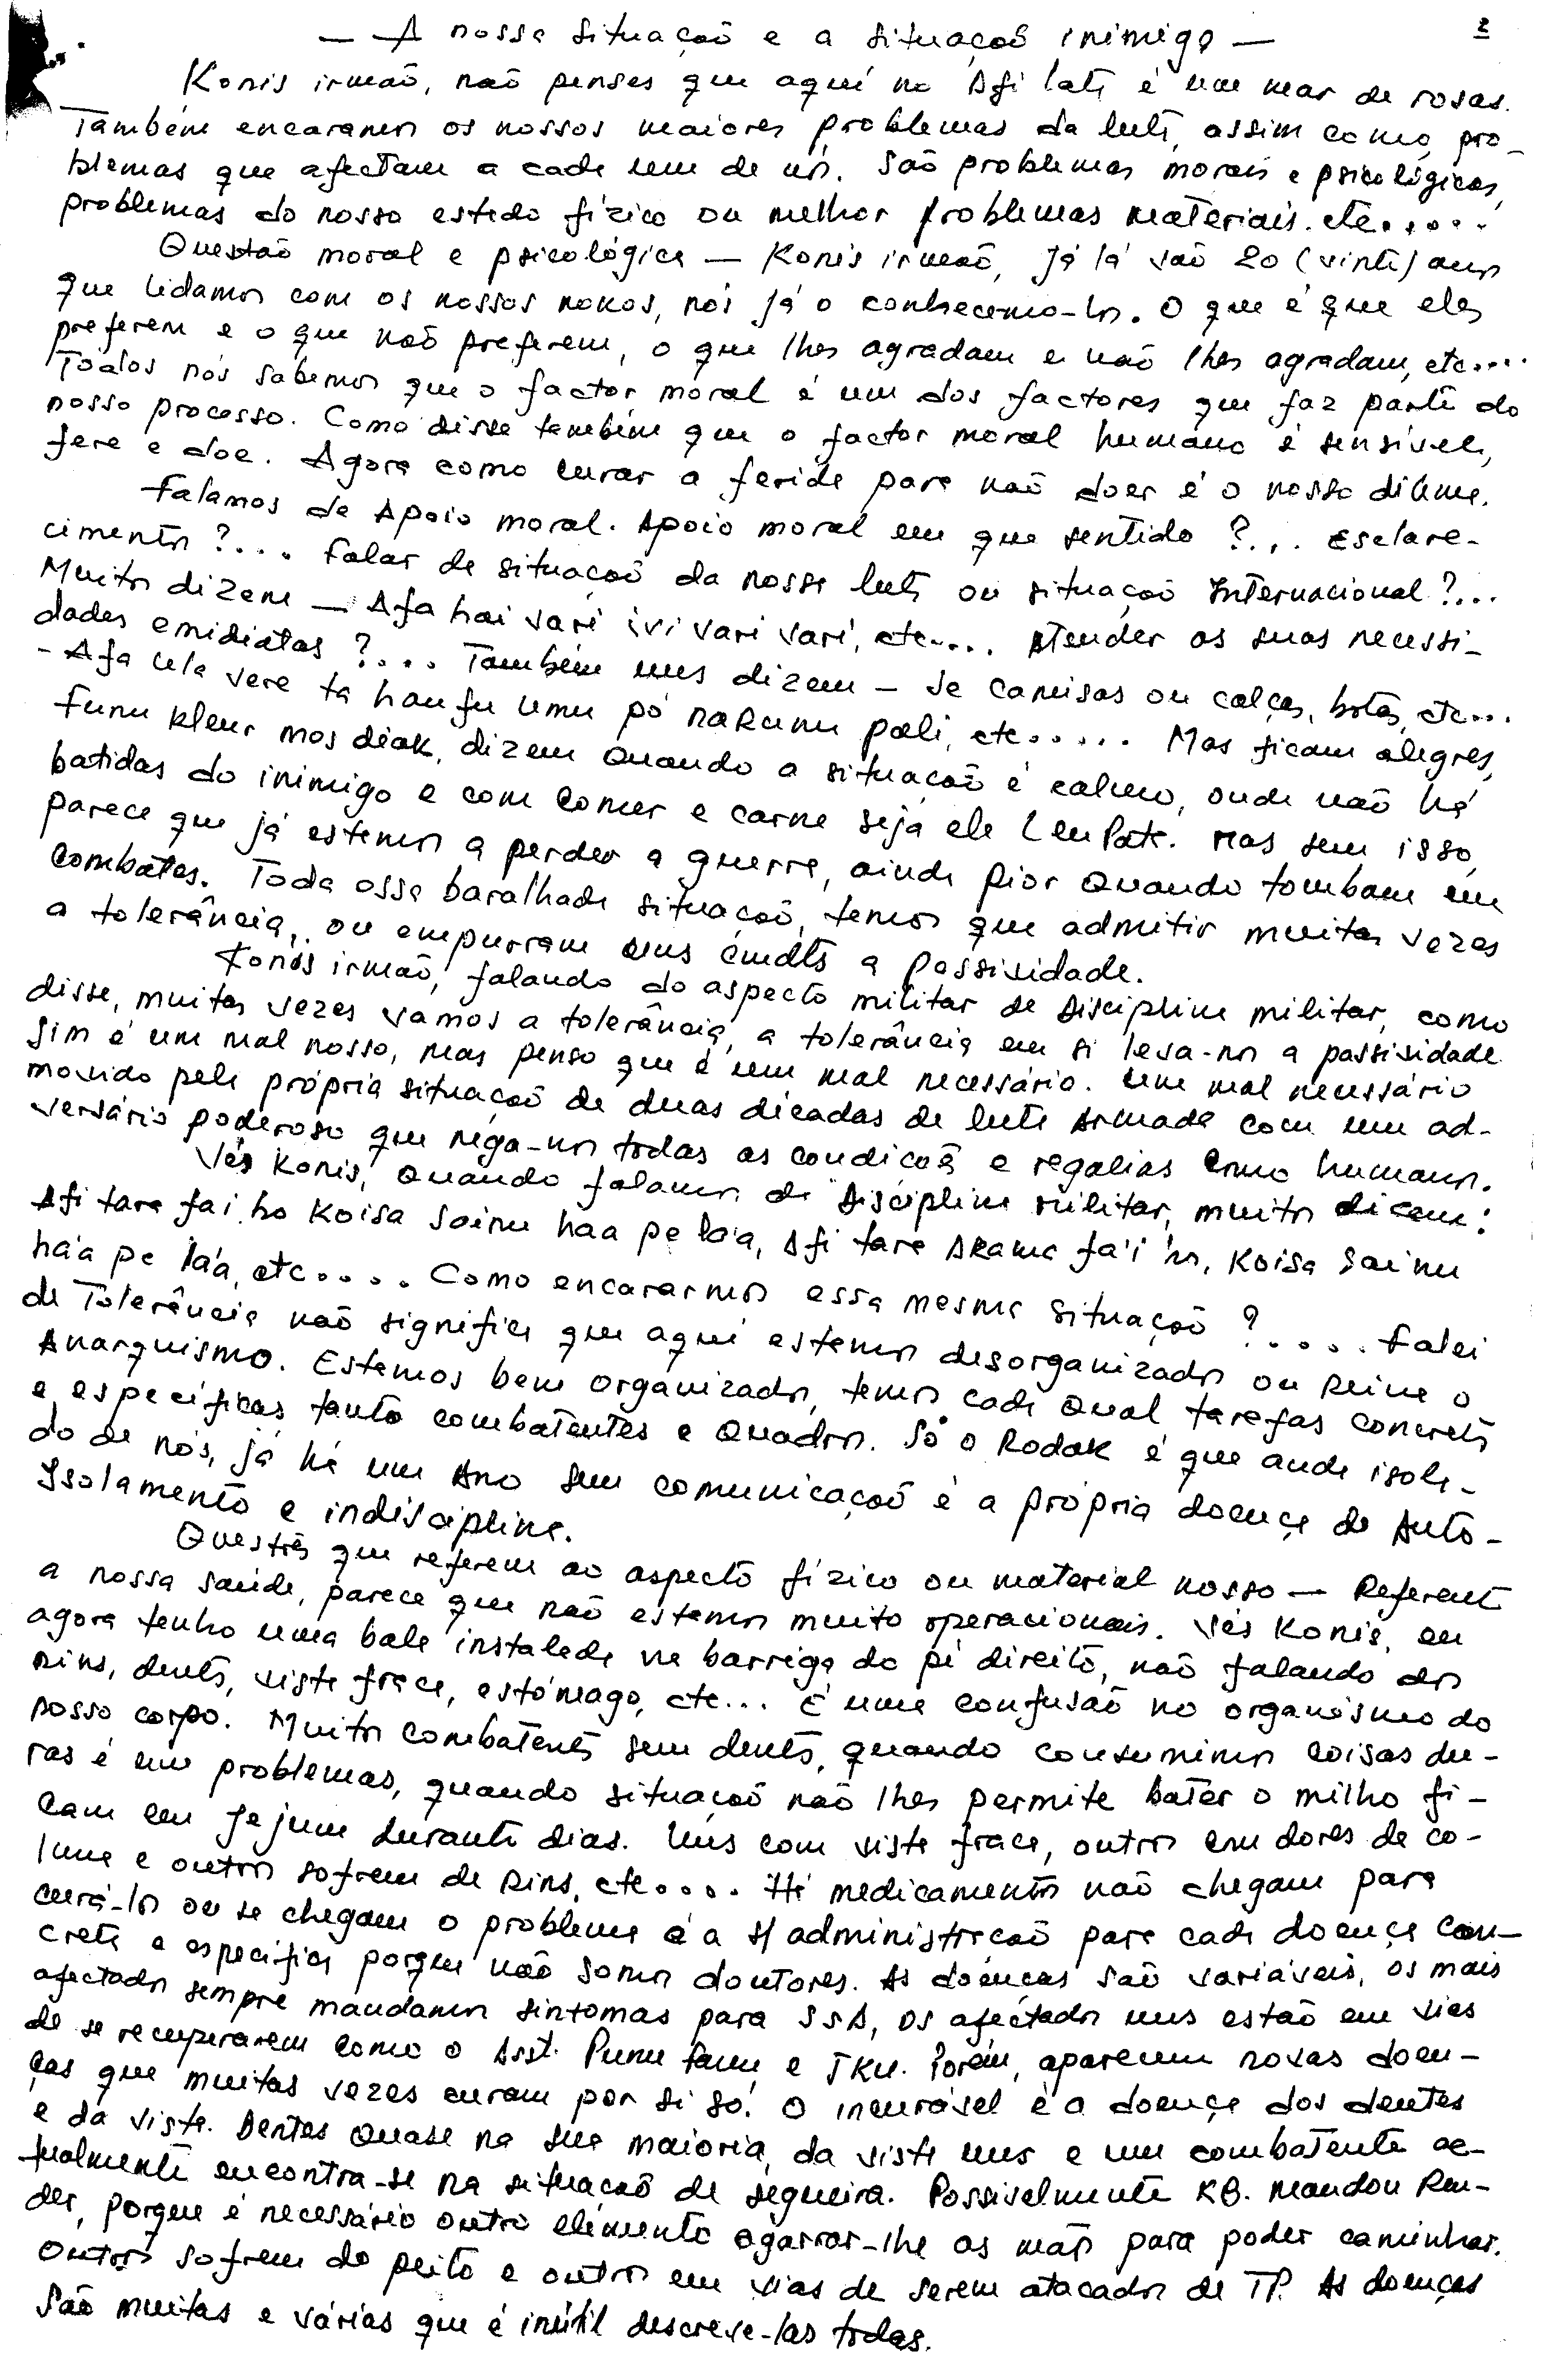 — A nossa situação e a situação inimiga —
2
Konis irmão, não penses que aqui no Afi Lati é um mar de rosas.
Também encaramos os nossos maiores problemas da luta, assim como pro-
blemas que afectam a cada um de nós. São problemas morais e psicológicos,
problemas do nosso estado fízico ou melhor problemas materiais. etc.....
Questão moral e psicológica — Konis irmão, já lá vão 20 (vinte) anos
que lidamos com os nossos nossos, nós já o conhecemo-los. O que é que eles
preferem e o que não preferem, o que lhes agradam e não lhes agradam, etc....
Todos nós sabemos que o factor moral é um dos factores que faz parte do
nosso processo. Como disse também que o factor moral humano é sensível,
fere e doe. Agora como curar a ferida para não doer é o nosso dilema.
Falamos de Apoio moral. Apoio moral em que sentido ?... Esclare-
cimentos ?.... Falar de situação da nossa luta ou situação Internacional ?...
Muitos dizem — Afa hai vari ivi vari vari, etc.... Atender as suas necessi-
dades emidiatas ?.... Também uns dizem — Se camisas ou calças, botas, etc...
- Afa lela vere ta haufu umu pó naRunu pali, etc..... Mas ficam alegres,
Funu kleur mos diak, dizem quando a situação é calmo, onde não há
batidas do inimigo e com comer e carne seja ele Leu Pate. Mas sem isso,
parece que já estamos a perder a guerra, ainda pior quando tombam em
combates. Toda ossa baralhada situação, temos que admitir muitas vezes
a tolerância, ou empurram uns a passividade.
Konis irmão, falando do aspecto militar de Disciplina militar, como
disse, muitas vezes vamos a tolerância, a tolerância em si leva-nos a passividade.
Sim é um mal nosso, mas penso que é um mal necessário. Um mal necessário
movido pela própria situação de duas décadas de luta Armada com um ad-
versário poderoso que nega-nos todas as condicoã e regalias como humanos.
Vês Konis, quando falamos de Disciplina militar, muitos dicem:
Afi tare fai ho Koisa Sainu haa pe la'a, Afi tare ARama fa'i ho, Koisa Sainu
ha'a pe la'a, etc..... Como encararmos essa mesma situação ?..... Falei
de Tolerância não significa que aqui estamos desorganizados ou Reina o
Anarquismo. Estamos bem organizados, temos cada qual tarefas concretas
e específicas tanto combatentes e Quadros. Só o Rodak é que anda isola-
do de nós, já há um Ano sem comunicação é a própria doença de Auto-
Isolamento e indisciplina.
Questões que referem ao aspecto fízico ou material nosso — Referente
a nossa saúde, parece que não estamos muito operacionais. Vês Konis, eu
agora tenho uma bala instalada na barriga do pé direito, não falando dos
rins, dentes, vista fraca, estómago, etc... É uma confusão no organismo do
nosso corpo. Muitos combatentes sem dentes, quando consumimos coisas du-
ras é um problemas, quando situação não lhes permite bater o milho fi-
cam em jejum durante dias. Uns com vista fraca, outros em dores de co-
luna e outros sofrem de Rins, etc..... Há medicamentos não chegam para
curá-los ou se chegam o problema é a s/ administração para cada doença con-
creta e específica porque não somos doutores. As doenças são variáveis, os mais
afectados sempre mandamos sintomas para SSA, os afectados uns estão em vias
de se recuperarem como o Asst. Punu Fanu e TKU. Porém, aparecem novas doen-
ças que muitas vezes curam por si só. O incurável é a doença dos dentes
e da vista. Dentes quase na sua maioria, da vista uns e um combatente ac-
tualmente encontra-se na situação de segueira. Possivelmente KB. mandou Ren-
der, porque é necessário outro elemento agarrar-lhe as mãos para poder caminhar.
Outros sofrem do peito e outros em vias de serem atacados de TP. As doenças
são muitas e várias que é inútil descreve-las todas.